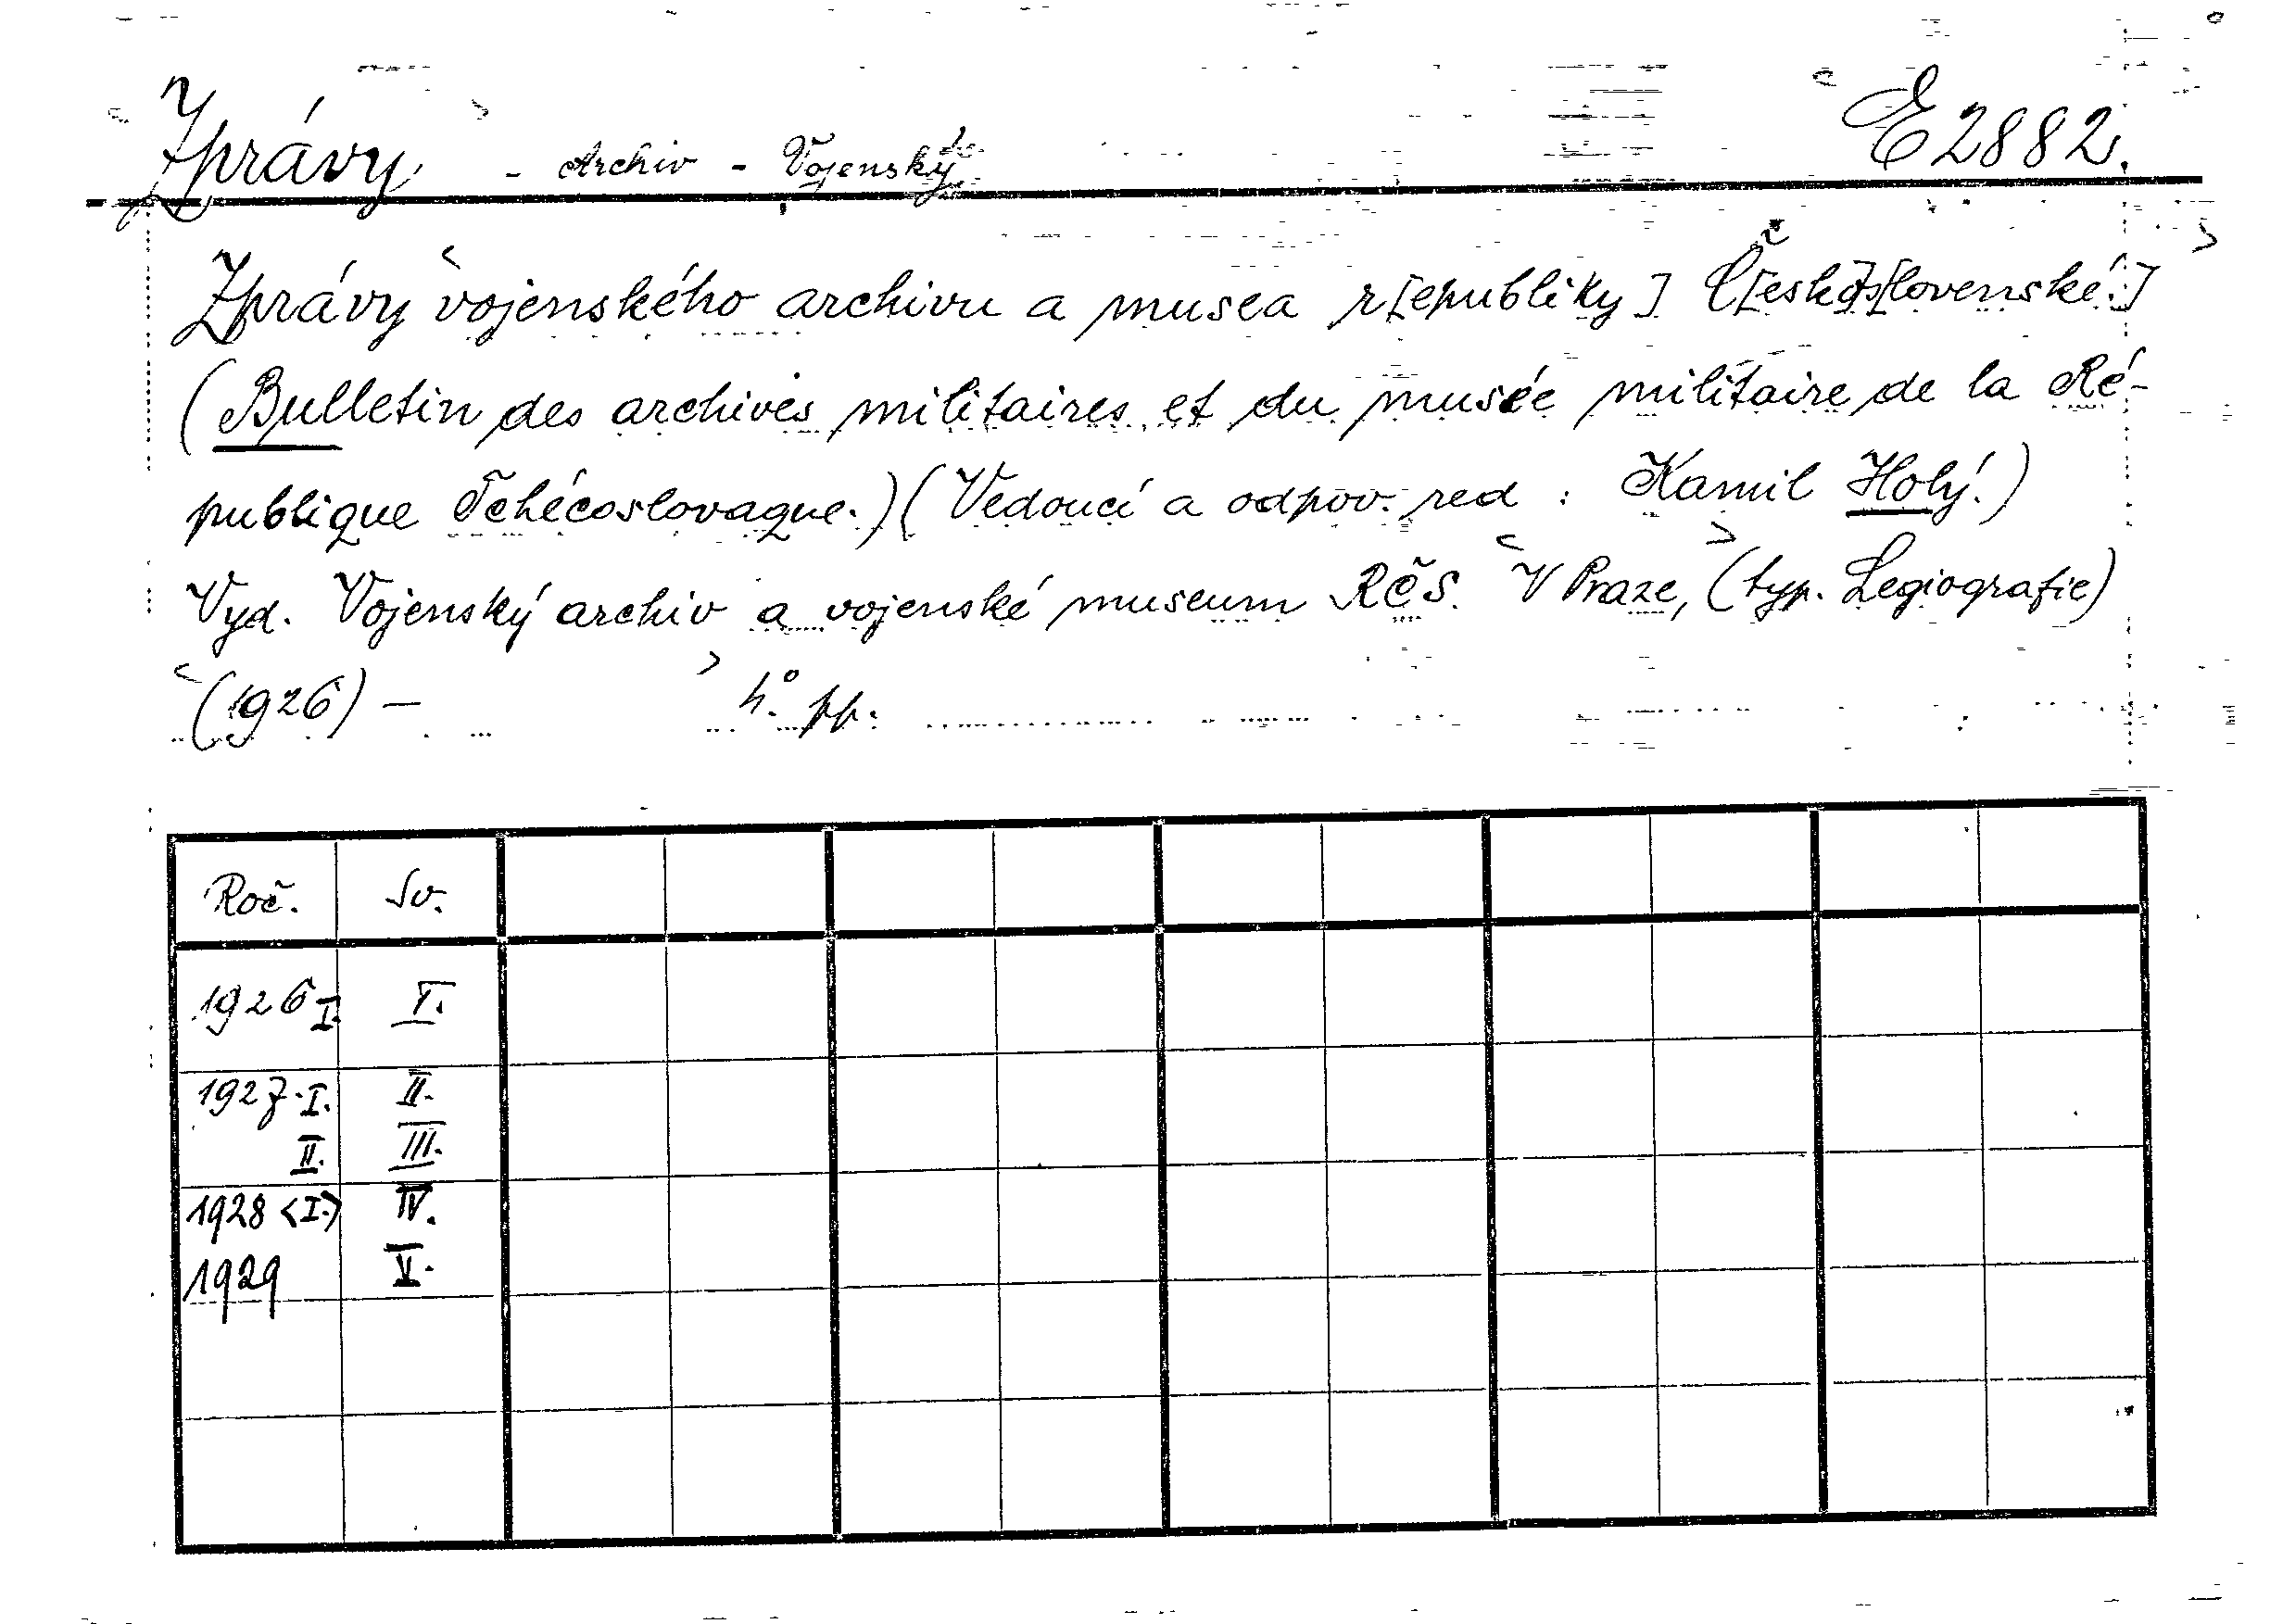 Zprávy - Archiv - Vojenský E 2882.
Zprávy vojenského archivu a musea r[epubliky] Č[esko]s[lovenské.]
(Bulletin des archives militaires et du musée militaire de la Ré-
publique Tchécoslovaque.) (Vedoucí a odpov. red : Kamil Holý.)
Vyd. Vojenský archiv a vojenské museum RČS. V Praze, (typ. Legiografie)
(1926) — 4°. pp.
Roč. Sv.
1926 I. I.
1927. I. II.
II. III.
1928 <I.> IV.
1929 V.